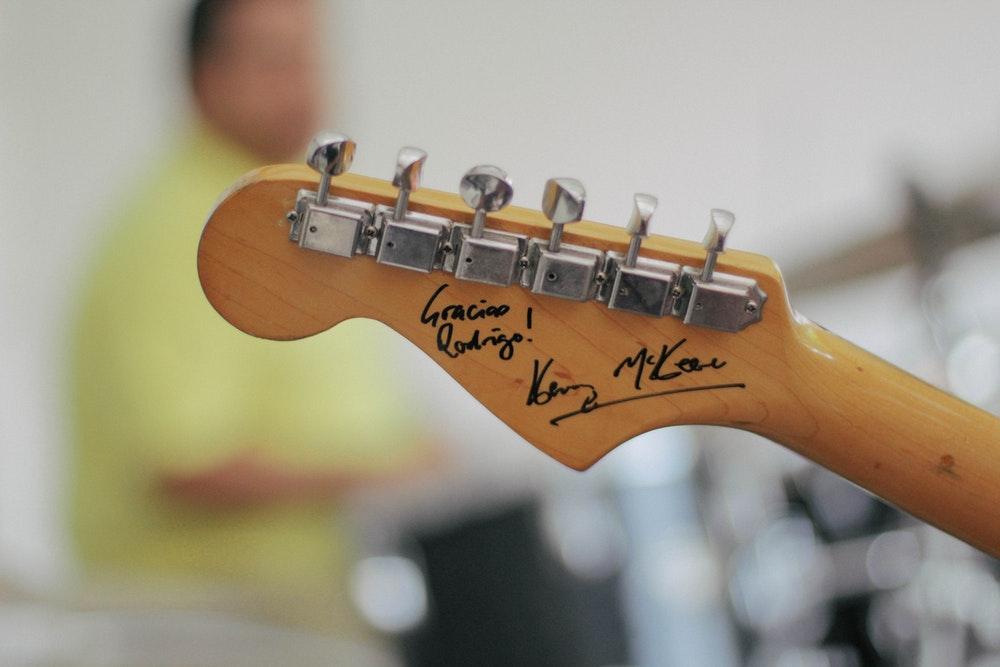 Gracias
Rodrigo!
Kenny McKeene